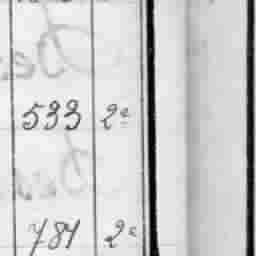 533 2e
781 2e